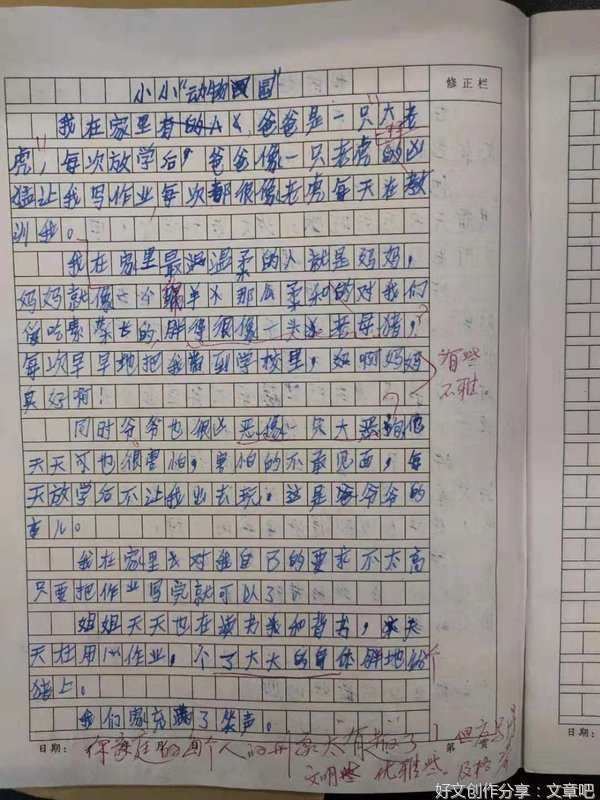 修正栏
小小"动物王国"
我在家里有的人 爸爸是一只大老
虎,每次放学后,爸爸像一只老虎的凶
猛让我写作业每次都很像老虎每天在教
训我。
我在家里最温柔的人就是妈妈,
妈妈就像一个羊 那么柔和的对我们
长的胖得很像一头 老母猪,
每次早早地把我带到学校里,妈妈
真好啊!
有些
不雅。
同时爷爷也很凶恶像一只大恶狗他
天天可也很害怕,害怕的不敢见面,每
天放学后不让我出去玩,这是爷爷的
事儿。
我在家里我对我自己的要求不太高
只要把作业写完就可以了
姐姐天天也在读书我和背书,天
天在用心作业,个了大大的
猪上。
我们家充满了笑声。
日期:
你家庭的每个人的形象太有趣了
文明些 优雅些。
好文创作分享:文章吧